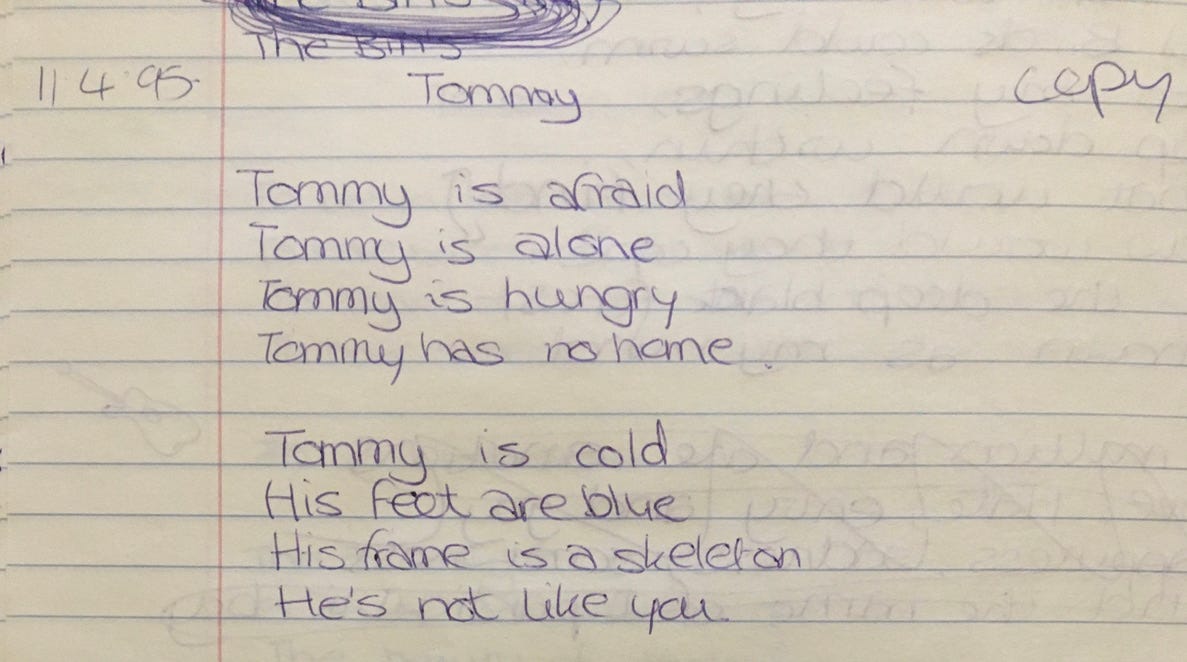 11.4.95. Tommy copy
Tommy is afraid
Tommy is alone
Tommy is hungry
Tommy has no home.
Tommy is cold
His feet are blue
His frame is a skeleton
He's not like you.